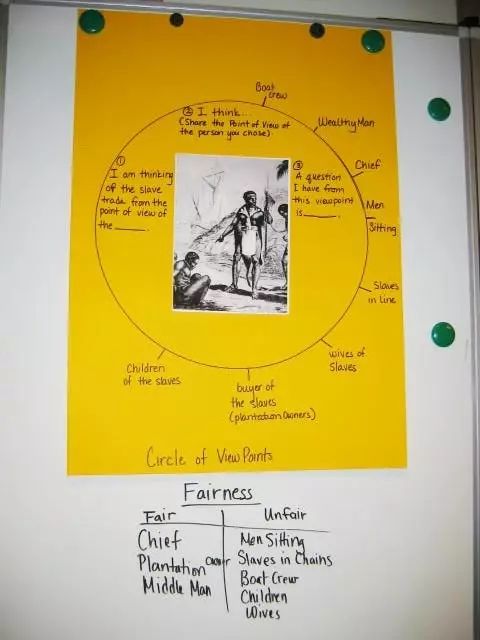 Boat
Crew
② I think...
(Share the Point of View of
the person you chose)
Wealthy Man
①
I am thinking
of the slave
trade from the
point of view of
the ____.
③
A question
I have from
this viewpoint
is ____.
Chief
Men
Sitting
Slaves
in line
wives of
Slaves
Children
of the slaves
buyer of
the slaves
(plantation owners)
Circle of View Points
Fairness
Fair
Unfair
Chief
Men Sitting
Plantation owner
Slaves in Chains
Middle Man
Boat Crew
Children
Wives